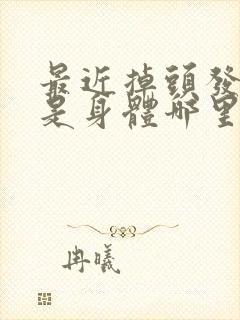 最近掉頭發
是身體哪里
冉曦